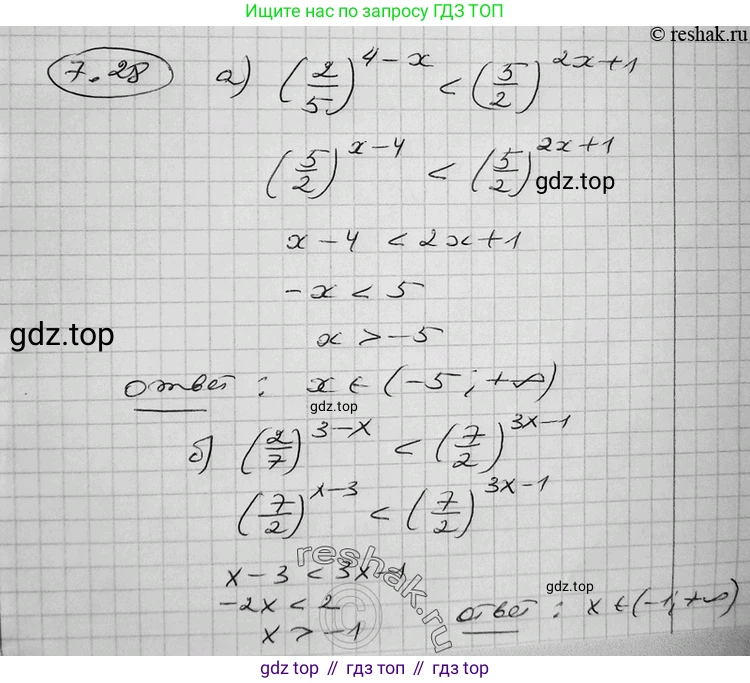 Ищите нас по запросу ГДЗ ТОП
© reshak.ru
7.28 а) (2/5)^(4-x) < (5/2)^(2x+1)
(5/2)^(x-4) < (5/2)^(2x+1)
gdz.top
x-4 < 2x+1
-x < 5
gdz.top
x > -5
ответ: x ∈ (-5; +∞)
gdz.top
б) (2/7)^(3-x) < (7/2)^(3x-1)
(7/2)^(x-3) < (7/2)^(3x-1)
reshak.ru
©
x-3 < 3x-1
-2x < 2
x > -1
ответ: x ∈ (-1; +∞)
gdz.top // гдз.топ // gdz.top // гдз.топ